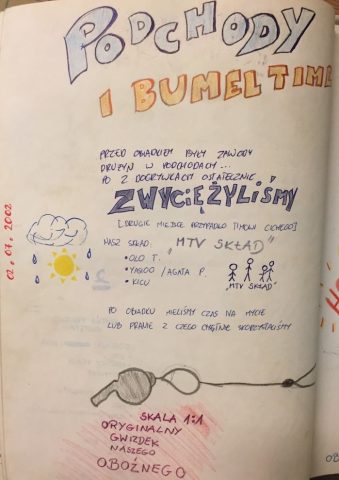 PODCHODY
I BUMELTIME
PRZED OBIADKIEM BYŁY ZAWODY
DRUŻYN W PODCHODACH...
PO 2 DOGRYWKACH OSTATECZNIE
ZWYCIĘŻYLIŚMY
[DRUGIE MIEJSCE PRZYPADŁO TIMOWI CICHEGO]
NASZ SKŁAD: "MTV SKŁAD"
• OLO T.
• YAGOO / AGATA P.
• KICU
"MTV SKŁAD"
02.07.2002
PO OBIADKU MIELIŚMY CZAS NA MYCIE
LUB PRANIE Z CZEGO CHĘTNIE SKORZYSTALIŚMY
SKALA 1:1
ORYGINALNY
GWIZDEK
NASZEGO
OBOŹNEGO